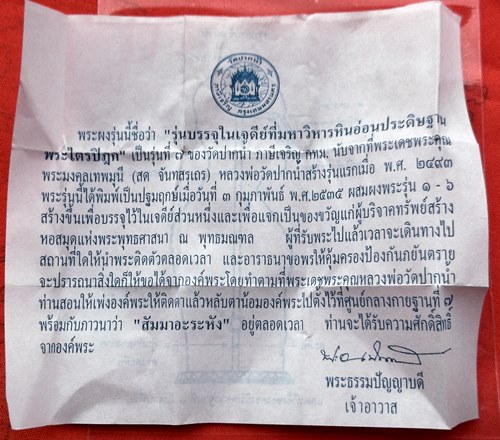 วัดปากน้ำ
ภาษีเจริญ กรุงเทพมหานคร
พระผงรุ่นนี้ชื่อว่า "รุ่นบรรจุในเจดีย์ที่มหาวิหารหินอ่อนประดิษฐาน
พระไตรปิฎก" เป็นรุ่นที่ ๗ ของวัดปากน้ำ ภาษีเจริญ กทม. นับจากที่พระเดชพระคุณ
พระมงคลเทพมุนี (สด จันทสรเถร) หลวงพ่อวัดปากน้ำสร้างรุ่นแรกเมื่อ พ.ศ. ๒๔๙๓
พระรุ่นนี้ได้พิมพ์เป็นปฐมฤกษ์เมื่อวันที่ ๓ กุมภาพันธ์ พ.ศ.๒๕๓๕ ผสมผงพระรุ่น ๑ - ๖
สร้างขึ้นเพื่อบรรจุไว้ในเจดีย์ส่วนหนึ่งและเพื่อแจกเป็นของขวัญแก่ผู้บริจาคทรัพย์สร้าง
หอสมุดแห่งพระพุทธศาสนา ณ พุทธมณฑล ผู้ที่รับพระไปแล้วเวลาจะเดินทางไป
สถานที่ใดให้นำพระติดตัวตลอดเวลา และอาราธนาขอพรให้คุ้มครองป้องกันภัยันตราย
จะปรารถนาสิ่งใดก็ให้ขอได้จากองค์พระโดยทำตามที่พระเดชพระคุณหลวงพ่อวัดปากน้ำ
ท่านสอนให้เพ่งองค์พระให้ติดตาแล้วหลับตาน้อมองค์พระไปตั้งไว้ที่ศูนย์กลางกายฐานที่ ๗
พร้อมกับภาวนาว่า "สัมมาอะระหัง" อยู่ตลอดเวลา ท่านจะได้รับความศักดิ์สิทธิ์
จากองค์พระ
พระธรรมปัญญาบดี
เจ้าอาวาส